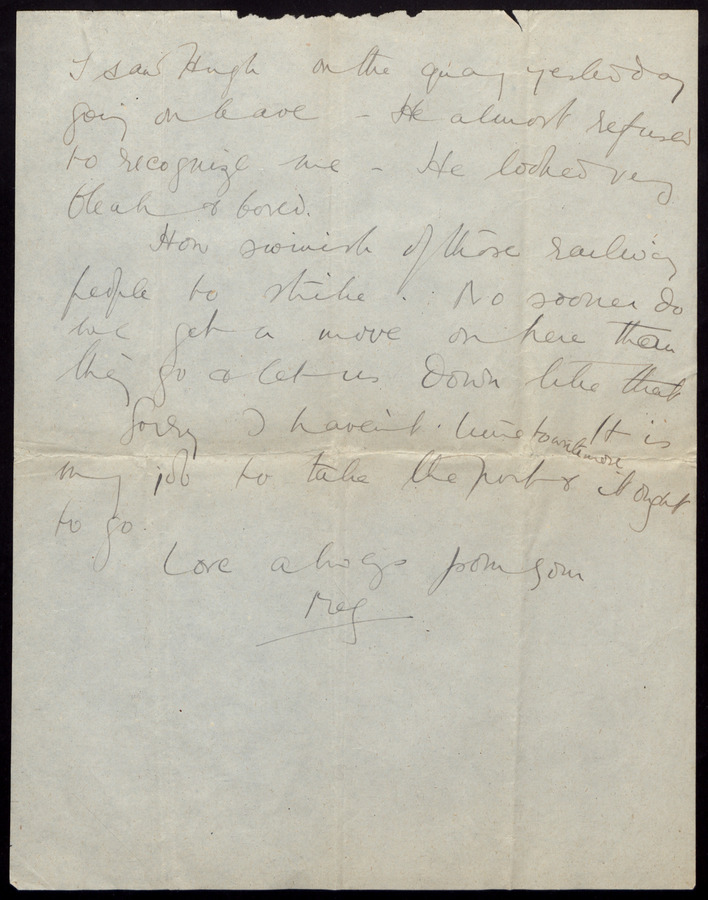 I saw Hugh on the quay yesterday
going on leave - He almost refused
to recognize me - He looked very
bleak & bored.
How swinish of those railway
people to strike. No sooner do
we get a move on here than
they go & let us down like that
Sorry I haven't time to write more It is
my job to take the post & it ought
to go
Love always from your
Meg